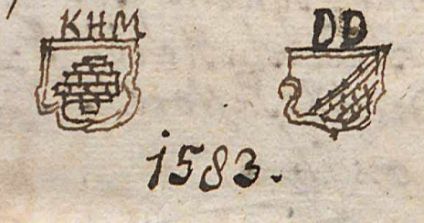 KHM DD
1583.